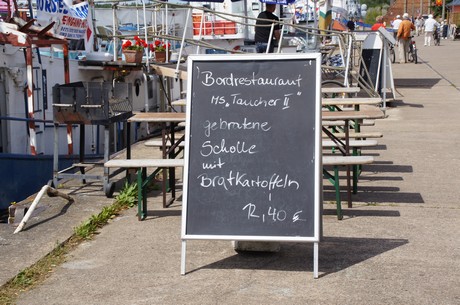 Bordrestaurant
MS „Taucher II"
gebratene
Scholle
mit
Bratkartoffeln
12,40